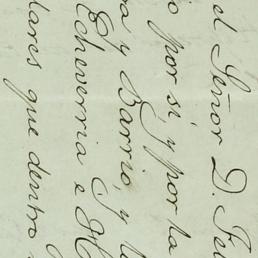 el Señor D. Fel
o por sí, y por la
ra y Barrio, y l
Echeverria e H
lares que dentro